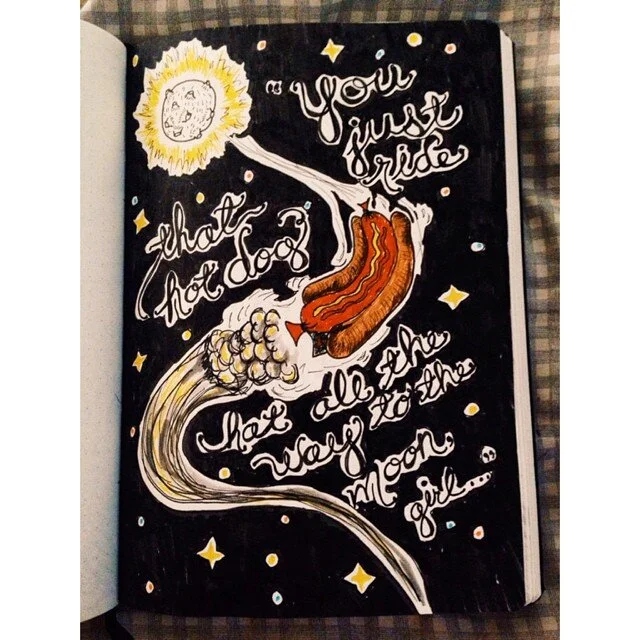 "You
just
ride
that
hot dog
hat all the
way to the
moon,
girl..."